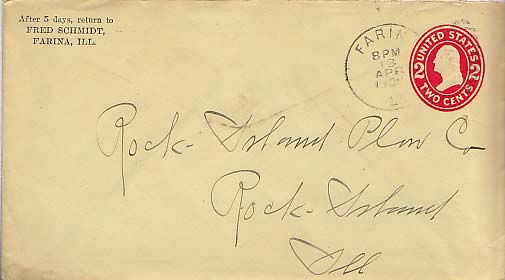 After 5 days, return to
FRED SCHMIDT,
FARINA, ILL.
FARINA
8PM
13
APR
UNITED STATES
2 2
TWO CENTS
Rock-Island Plow Co
Rock-Island
Ill